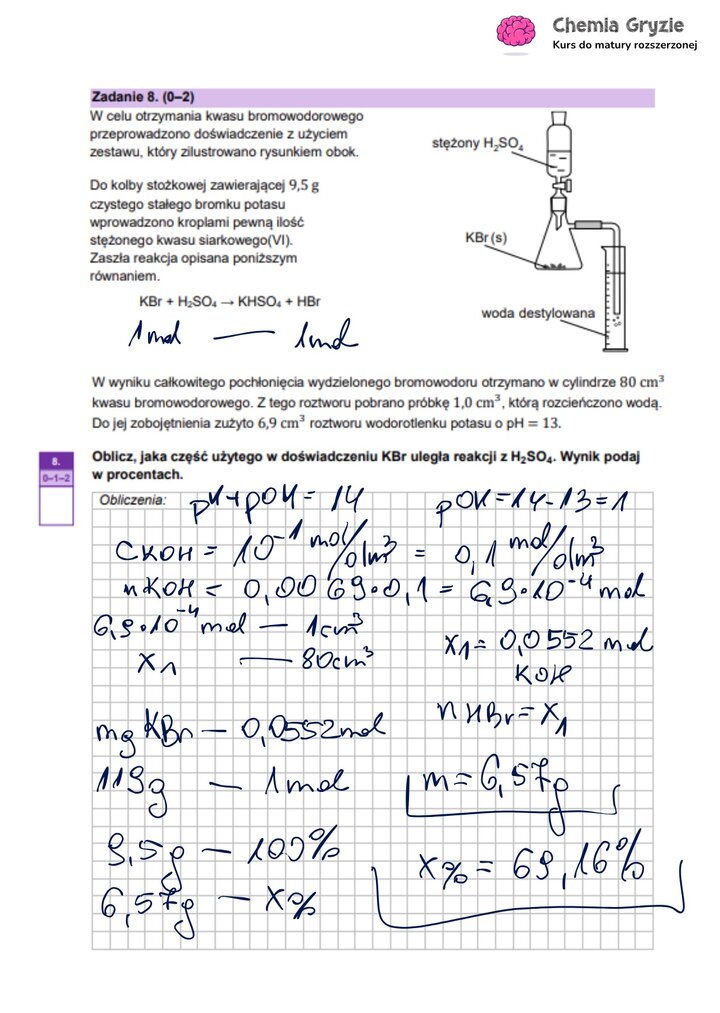 Chemia Gryzie
Kurs do matury rozszerzonej
Zadanie 8. (0–2)
W celu otrzymania kwasu bromowodorowego
przeprowadzono doświadczenie z użyciem
zestawu, który zilustrowano rysunkiem obok.
Do kolby stożkowej zawierającej 9,5 g
czystego stałego bromku potasu
wprowadzono kroplami pewną ilość
stężonego kwasu siarkowego(VI).
Zaszła reakcja opisana poniższym
równaniem.
KBr + H₂SO₄ → KHSO₄ + HBr
1 mol — 1 mol
stężony H₂SO₄
KBr (s)
woda destylowana
W wyniku całkowitego pochłonięcia wydzielonego bromowodoru otrzymano w cylindrze 80 cm³
kwasu bromowodorowego. Z tego roztworu pobrano próbkę 1,0 cm³, którą rozcieńczono wodą.
Do jej zobojętnienia zużyto 6,9 cm³ roztworu wodorotlenku potasu o pH = 13.
8.
0–1–2
Oblicz, jaka część użytego w doświadczeniu KBr uległa reakcji z H₂SO₄. Wynik podaj
w procentach.
Obliczenia: pH+pOH = 14 pOH = 14 - 13 = 1
CKOH = 10⁻¹ mol/dm³ = 0,1 mol/dm³
nKOH = 0,0069·0,1 = 6,9·10⁻⁴ mol
6,9·10⁻⁴ mol — 1cm³
x₁ — 80cm³
x₁ = 0,0552 mol
KOH
nHBr = x₁
mg KBr — 0,0552mol
119g — 1 mol
m = 6,57g
9,5g — 100%
6,57g — x%
x% = 69,16%